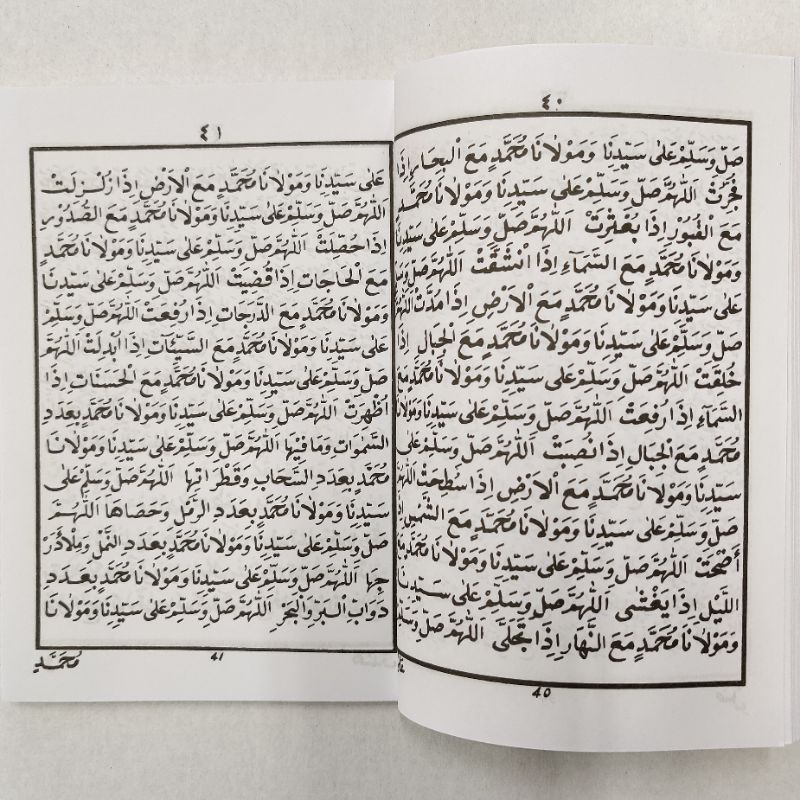 ٤٠
صَلِّ وَسَلِّمْ عَلَى سَيِّدِنَا وَمَوْلَانَا مُحَمَّدٍ مَعَ الْبِحَارِ إِذَا
فُجِّرَتْ اَللّٰهُمَّ صَلِّ وَسَلِّمْ عَلَى سَيِّدِنَا وَمَوْلَانَا مُحَمَّدٍ
مَعَ الْقُبُوْرِ إِذَا بُعْثِرَتْ اَللّٰهُمَّ صَلِّ وَسَلِّمْ عَلَى سَيِّدِنَا
وَمَوْلَانَا مُحَمَّدٍ مَعَ السَّمَآءِ إِذَا انْشَقَّتْ اَللّٰهُمَّ صَلِّ وَسَلِّمْ
عَلَى سَيِّدِنَا وَمَوْلَانَا مُحَمَّدٍ مَعَ الْاَرْضِ إِذَا مُدَّتْ اَللّٰهُمَّ
صَلِّ وَسَلِّمْ عَلَى سَيِّدِنَا وَمَوْلَانَا مُحَمَّدٍ مَعَ الْجِبَالِ إِذَا
خُلِقَتْ اَللّٰهُمَّ صَلِّ وَسَلِّمْ عَلَى سَيِّدِنَا وَمَوْلَانَا مُحَمَّدٍ مَعَ
السَّمَآءِ إِذَا رُفِعَتْ اَللّٰهُمَّ صَلِّ وَسَلِّمْ عَلَى سَيِّدِنَا وَمَوْلَانَا
مُحَمَّدٍ مَعَ الْجِبَالِ إِذَا نُصِبَتْ اَللّٰهُمَّ صَلِّ وَسَلِّمْ عَلَى
سَيِّدِنَا وَمَوْلَانَا مُحَمَّدٍ مَعَ الْاَرْضِ إِذَا سُطِحَتْ اَللّٰهُمَّ
صَلِّ وَسَلِّمْ عَلَى سَيِّدِنَا وَمَوْلَانَا مُحَمَّدٍ مَعَ الشَّمْسِ إِذَا
أَضْحَتْ اَللّٰهُمَّ صَلِّ وَسَلِّمْ عَلَى سَيِّدِنَا وَمَوْلَانَا مُحَمَّدٍ مَعَ
اللَّيْلِ إِذَا يَغْشٰى اَللّٰهُمَّ صَلِّ وَسَلِّمْ عَلَى سَيِّدِنَا
وَمَوْلَانَا مُحَمَّدٍ مَعَ النَّهَارِ إِذَا تَجَلَّى اَللّٰهُمَّ صَلِّ وَسَلِّمْ
40
٤١
عَلَى سَيِّدِنَا وَمَوْلَانَا مُحَمَّدٍ مَعَ الْاَرْضِ إِذَا زُلْزِلَتْ
اَللّٰهُمَّ صَلِّ وَسَلِّمْ عَلَى سَيِّدِنَا وَمَوْلَانَا مُحَمَّدٍ مَعَ الصُّدُوْرِ
إِذَا حُصِّلَتْ اَللّٰهُمَّ صَلِّ وَسَلِّمْ عَلَى سَيِّدِنَا وَمَوْلَانَا مُحَمَّدٍ
مَعَ الْحَاجَاتِ إِذَا قُضِيَتْ اَللّٰهُمَّ صَلِّ وَسَلِّمْ عَلَى سَيِّدِنَا
وَمَوْلَانَا مُحَمَّدٍ مَعَ الدَّرَجَاتِ إِذَا رُفِعَتْ اَللّٰهُمَّ صَلِّ وَسَلِّمْ
عَلَى سَيِّدِنَا وَمَوْلَانَا مُحَمَّدٍ مَعَ السَّيِّئَاتِ إِذَا اُبْدِلَتْ اَللّٰهُمَّ
صَلِّ وَسَلِّمْ عَلَى سَيِّدِنَا وَمَوْلَانَا مُحَمَّدٍ مَعَ الْحَسَنَاتِ إِذَا
أُظْهِرَتْ اَللّٰهُمَّ صَلِّ وَسَلِّمْ عَلَى سَيِّدِنَا وَمَوْلَانَا مُحَمَّدٍ بِعَدَدِ
السَّمٰوَاتِ وَمَا فِيْهَا اَللّٰهُمَّ صَلِّ وَسَلِّمْ عَلَى سَيِّدِنَا وَمَوْلَانَا
مُحَمَّدٍ بِعَدَدِ السَّحَابِ وَقَطَرَاتِهَا اَللّٰهُمَّ صَلِّ وَسَلِّمْ عَلَى
سَيِّدِنَا وَمَوْلَانَا مُحَمَّدٍ بِعَدَدِ الرَّمْلِ وَحَصَاهَا اَللّٰهُمَّ
صَلِّ وَسَلِّمْ عَلَى سَيِّدِنَا وَمَوْلَانَا مُحَمَّدٍ بِعَدَدِ النَّمْلِ وَمِلْأَدْرَ
جِهَا اَللّٰهُمَّ صَلِّ وَسَلِّمْ عَلَى سَيِّدِنَا وَمَوْلَانَا مُحَمَّدٍ بِعَدَدِ
دَوَابِّ الْبَرِّ وَالْبَحْرِ اَللّٰهُمَّ صَلِّ وَسَلِّمْ عَلَى سَيِّدِنَا وَمَوْلَانَا
41
مُحَمَّدٍ